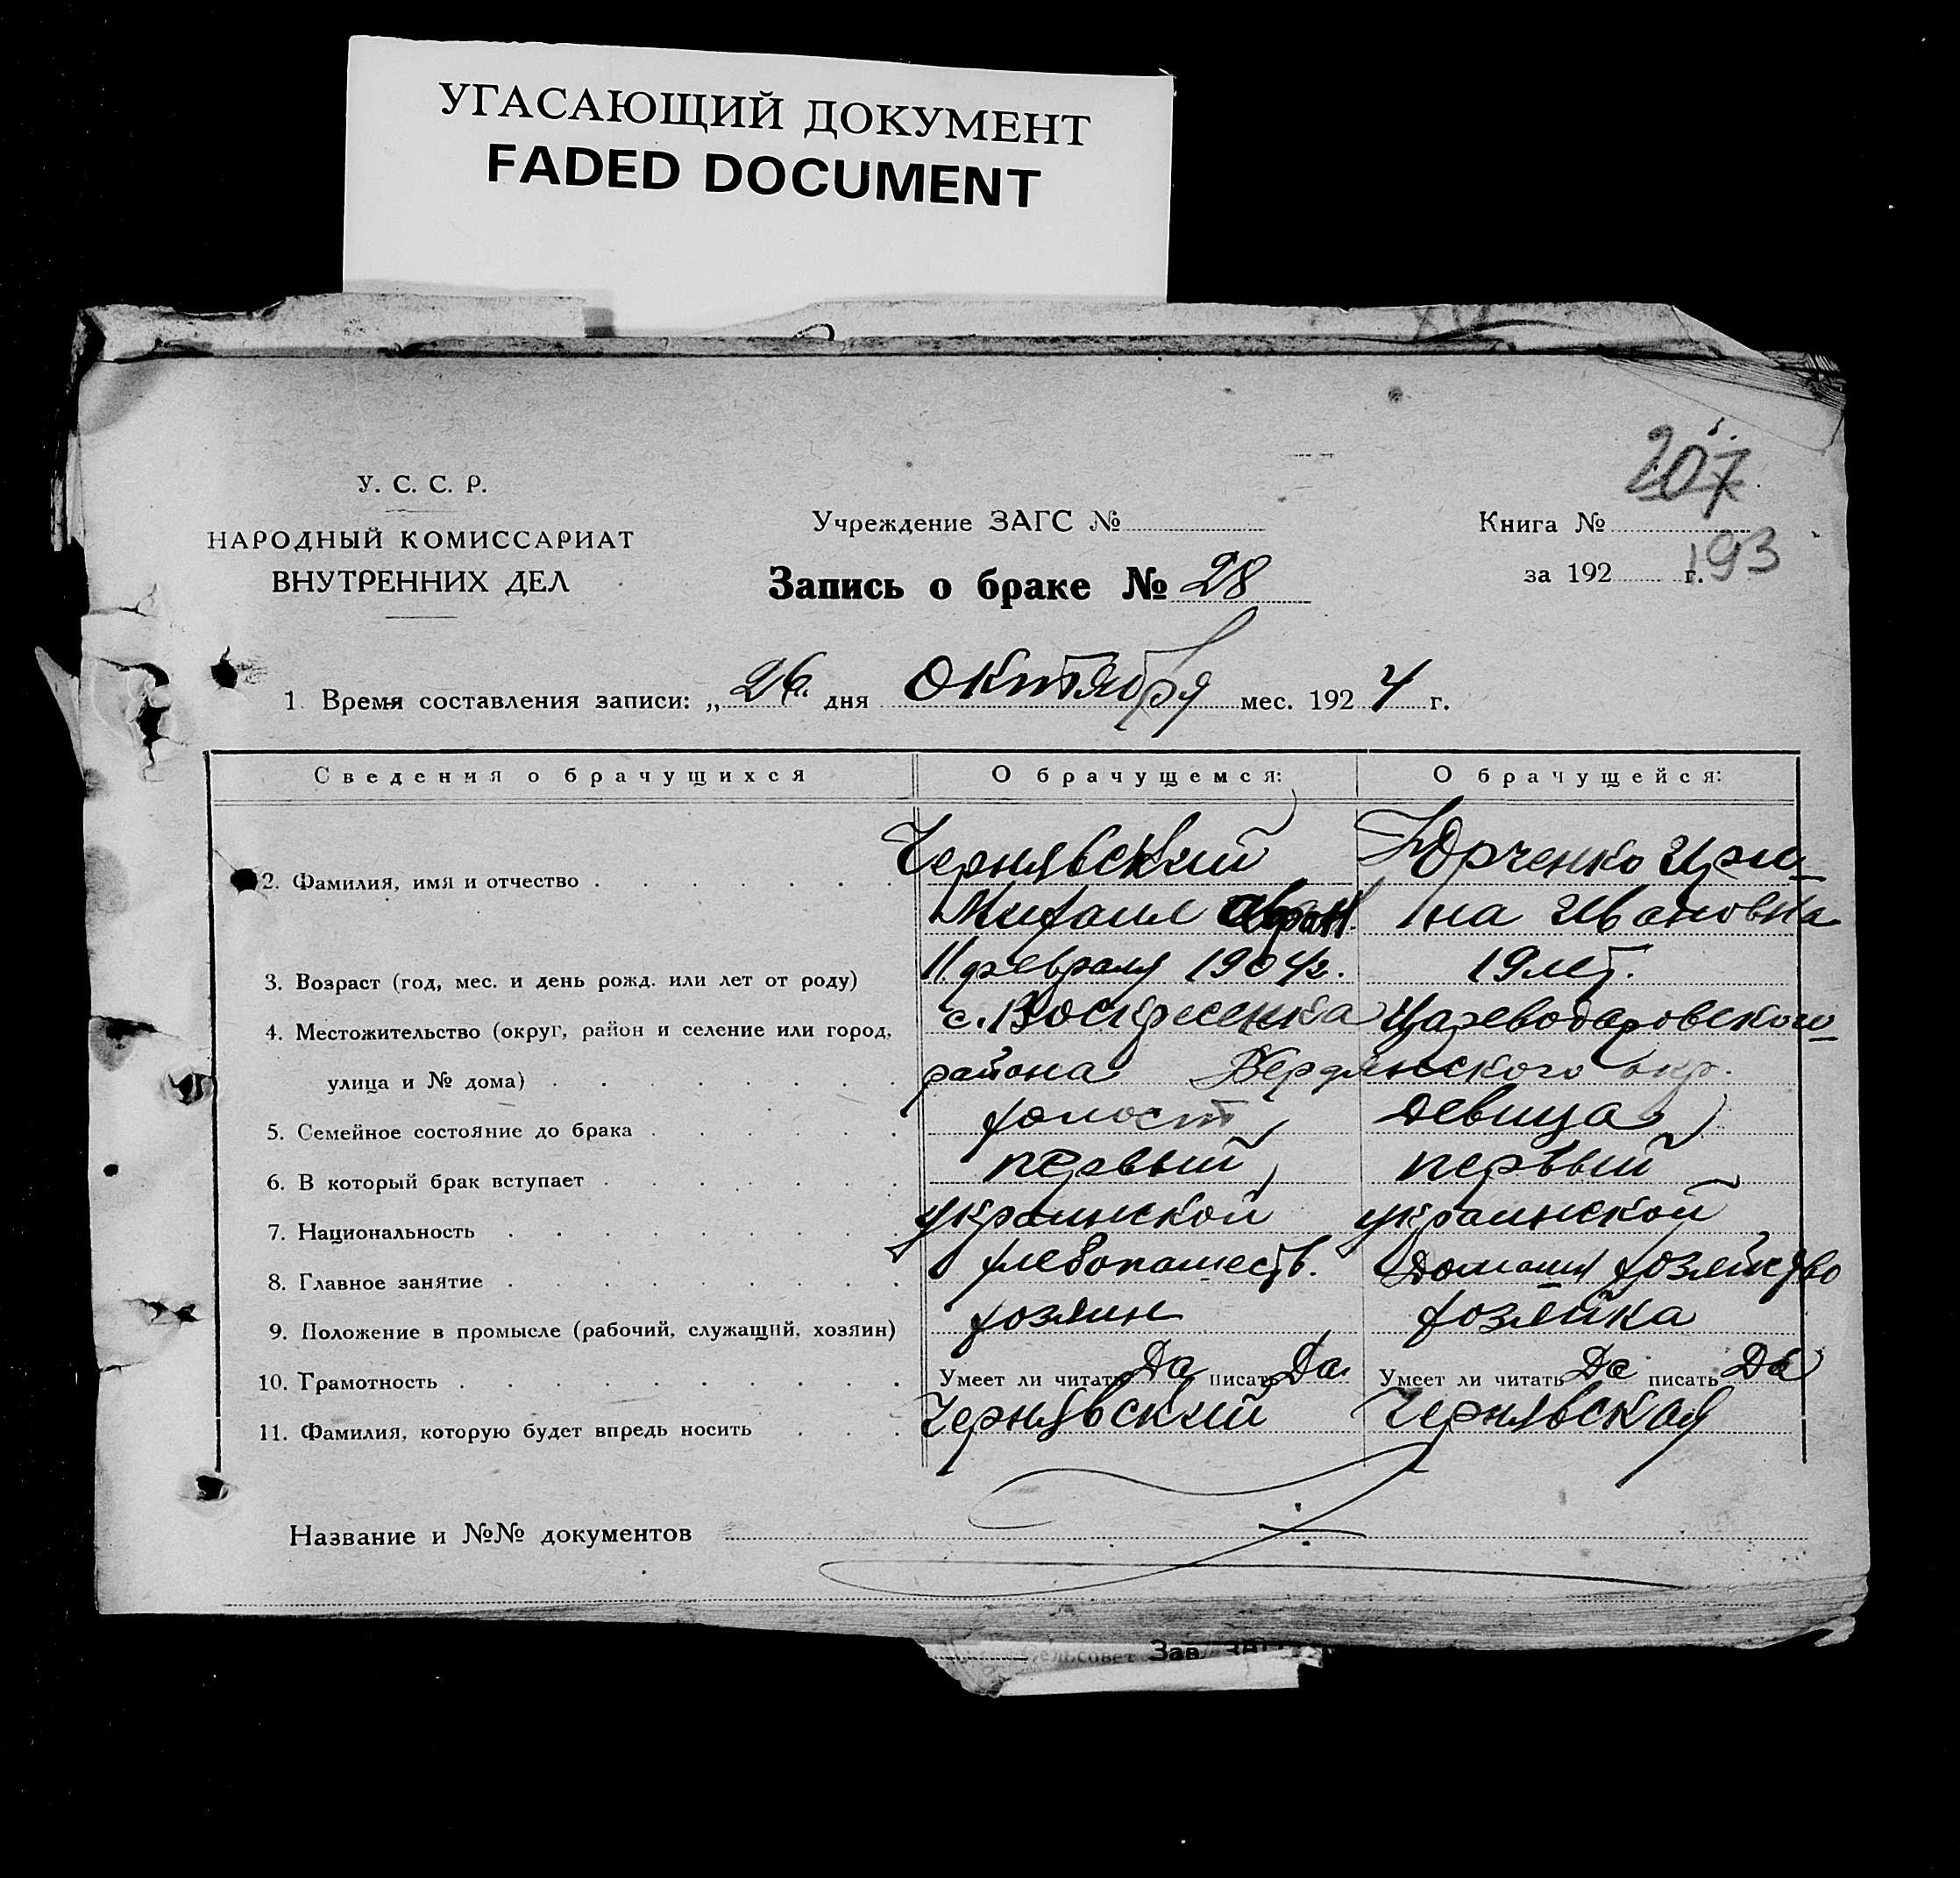 УГАСАЮЩИЙ ДОКУМЕНТ
FADED DOCUMENT
207
У. С. С. Р.
НАРОДНЫЙ КОМИССАРИАТ
ВНУТРЕННИХ ДЕЛ
Учреждение ЗАГС №
Книга №
за 192 г.
193
Запись о браке № 28
1. Время составления записи: „ 26 дня октября мес. 1924 г.
Сведения о брачущихся О брачущемся: О брачущейся:
2. Фамилия, имя и отчество . Чернявский Юрченко Ири-
Михаил на Ивановна
3. Возраст (год, мес. и день рожд. или лет от роду) 11 февраля 1904 г. 19 лет.
4. Местожительство (округ, район и селение или город, с. Воскресенка Цареводаровского
улица и № дома) . района Бердянского окр.
5. Семейное состояние до брака . холост девица
6. В который брак вступает . первый первый
7. Национальность . украинской украинской
8. Главное занятие . хлебопашеств. домашн хозяйство
9. Положение в промысле (рабочий, служащий, хозяин) хозяин хозяйка
10. Грамотность . Умеет ли читать Да писать Да Умеет ли читать Да писать Да
11. Фамилия, которую будет впредь носить . Чернявский Чернявская
Название и №№ документов
сельсовет Зав. ЗАГС